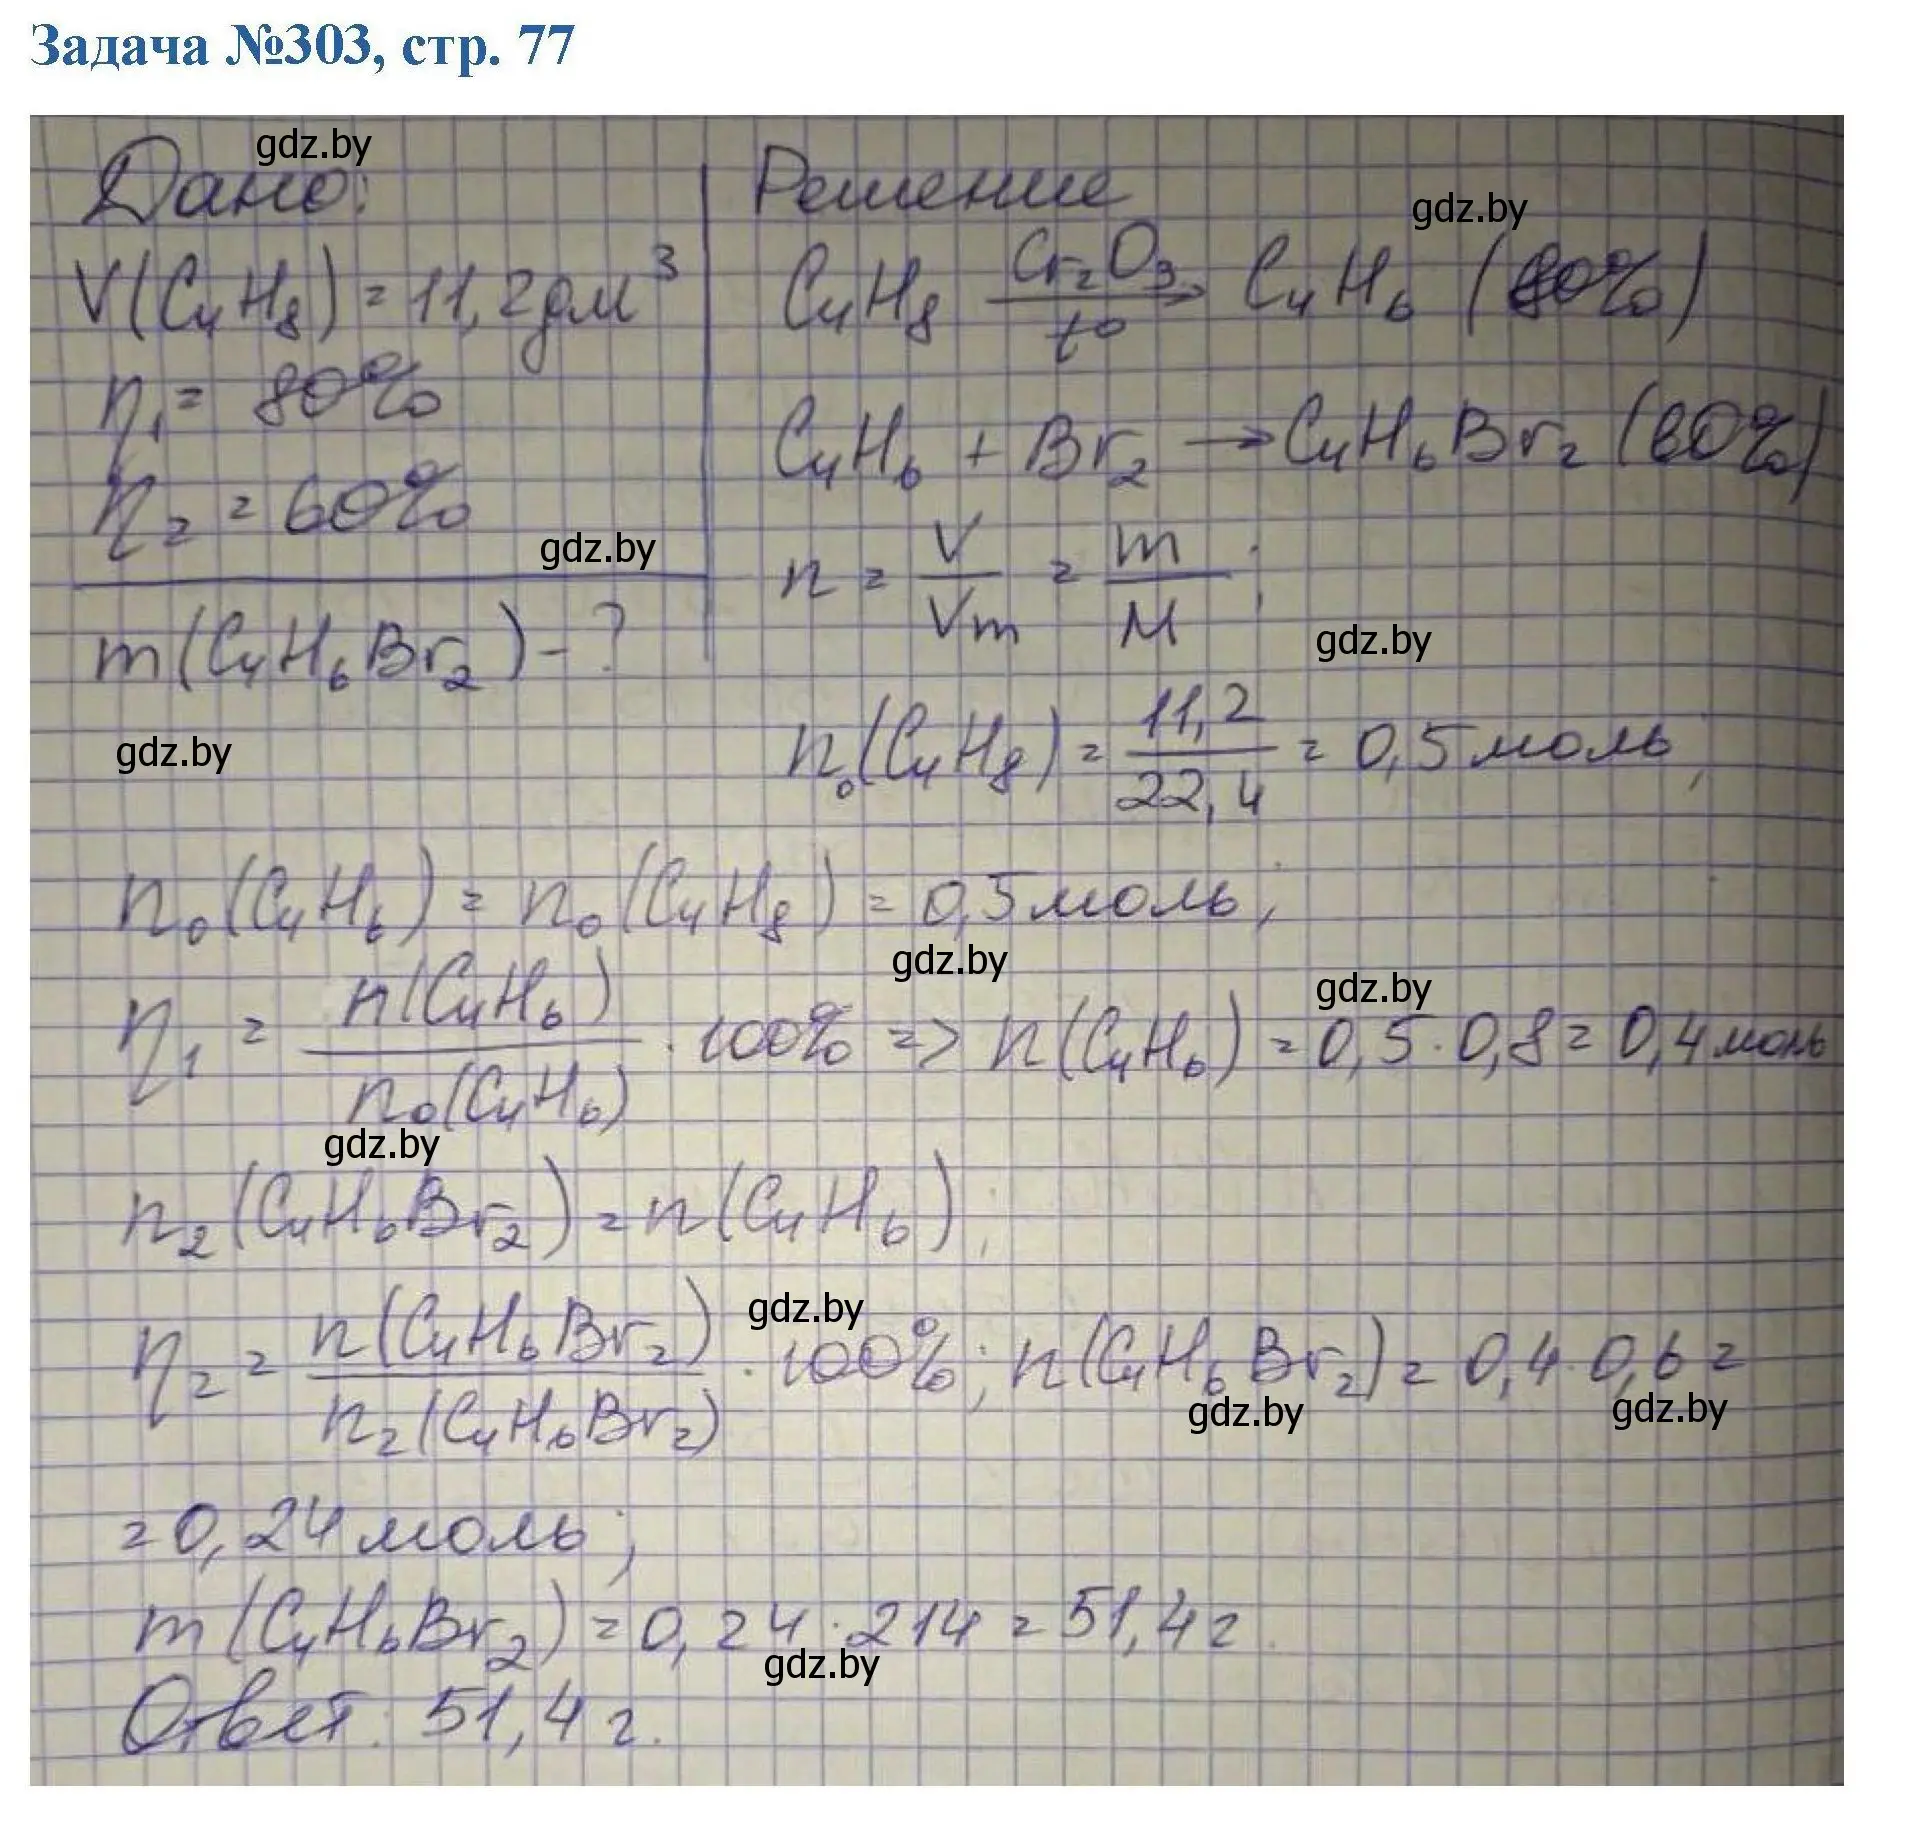 Задача №303, стр. 77
gdz.by
Дано:
Решение
gdz.by
V(C₄H₈) = 11,2 дм³
C₄H₈ —Cr₂O₃, t°→ C₄H₆ (80%)
η₁ = 80%
C₄H₆ + Br₂ → C₄H₆Br₂ (60%)
η₂ = 60%
gdz.by
n = V/Vm = m/M ;
m(C₄H₆Br₂) - ?
gdz.by
gdz.by
n₀(C₄H₈) = 11,2/22,4 = 0,5 моль;
n₀(C₄H₆) = n₀(C₄H₈) = 0,5 моль;
gdz.by
gdz.by
η₁ = n(C₄H₆)/n₀(C₄H₆) · 100% => n(C₄H₆) = 0,5 · 0,8 = 0,4 моль
gdz.by
n₂(C₄H₆Br₂) = n(C₄H₆);
gdz.by
η₂ = n(C₄H₆Br₂)/n₂(C₄H₆Br₂) · 100%; n(C₄H₆Br₂) = 0,4 · 0,6 =
gdz.by
gdz.by
= 0,24 моль;
m(C₄H₆Br₂) = 0,24 · 214 = 51,4 г.
gdz.by
Ответ: 51,4 г.